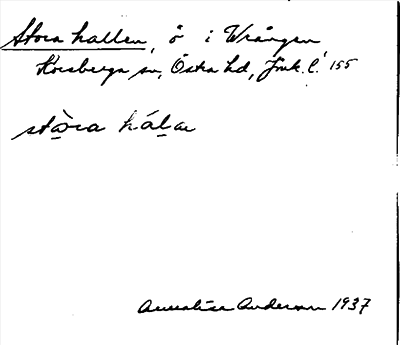 Stora hallen, ö i Wrången
Korsberga sn, Östra hd, Jönk. l. 155
stòra hálar
Annalisa Anderson 1937